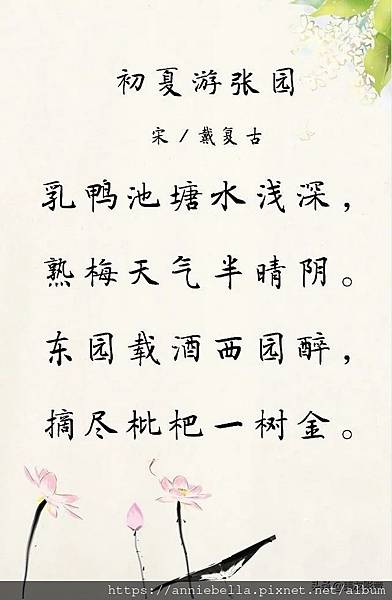 初夏游张园
宋/戴复古
乳鸭池塘水浅深，
熟梅天气半晴阴。
东园载酒西园醉，
摘尽枇杷一树金。
https://anniebella.pixnet.net/album